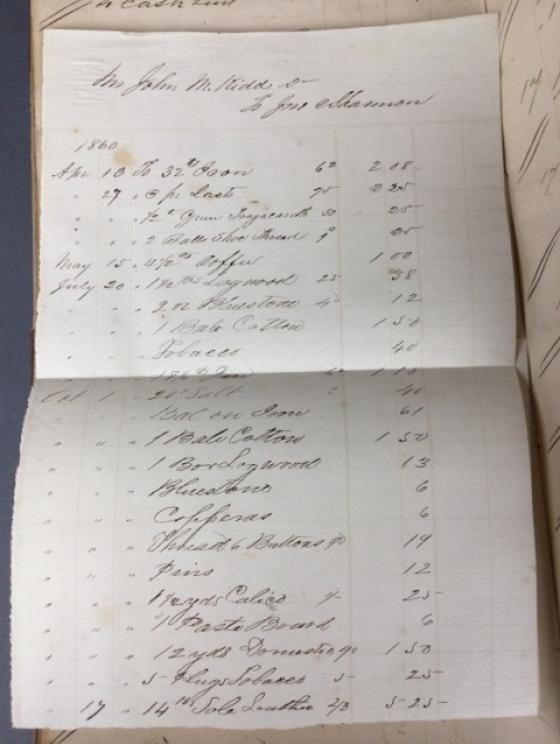 to cash lent
Mr John M. Kidd Dr
To Jno Shannon
1860
Apr 10 To 32 lbs Iron 6½ 2 08
" 27 " 3 pr Lasts 75 2 25
" " " ½ lb Gum Tragacanth 50 25
" " " 2 Balls Shoe Thread 25
May 15 " 4½ lbs Coffee 1 00
July 20 " 1½ lbs Logwood 25 38
" " " 2 oz Bluestone 12
" " " 1 Bale Cotton 1 50
" " " Tobacco 40
" " " Iron
Oct 1 " 20 lb Salt 2 40
" " " Bal on Iron 61
" " " 1 Bale Cotton 1 50
" " " 1 Box Logwood 13
" " " Bluestone 6
" " " Copperas 6
" " " Thread & Buttons 19
" " " Pins 12
" " " 1½ yds Calico 25
" " " 1 Paste Board 6
" " " 12 yds Domestic 1 50
" " " 5 Plugs Tobacco 5 25
" 17 " 14 lbs Sole Leather 2/3 5 25